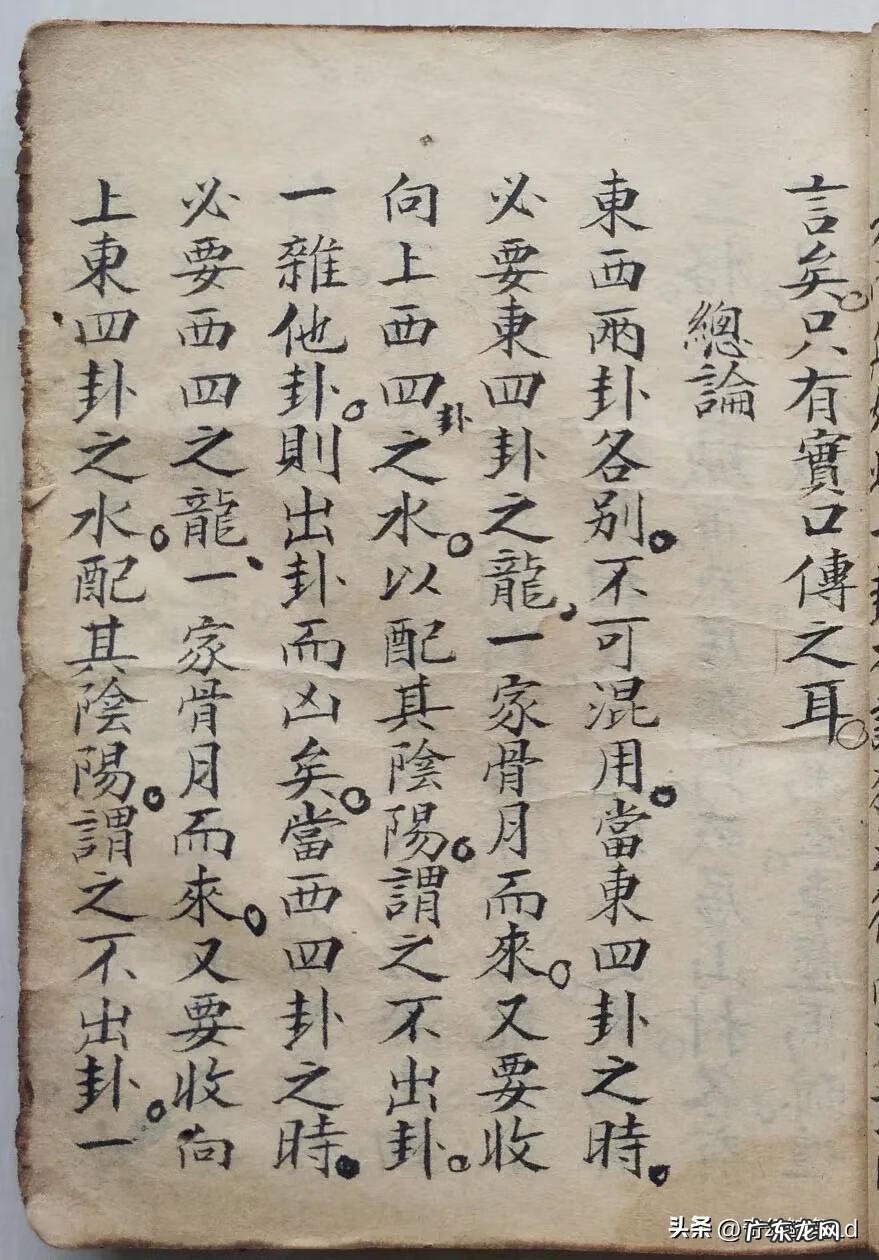 言矣。只有實口傳之耳。
總論
東西兩卦各別。不可混用。當東四卦之時。
必要東四卦之龍。一家骨月而來。又要收
向上西四卦之水。以配其陰陽。謂之不出卦。
一雜他卦。則出卦而凶矣。當西四卦之時。
必要西四之龍、一家骨月而來。又要收向
上東四卦之水。配其陰陽。謂之不出卦。一
头条 @广东龙网